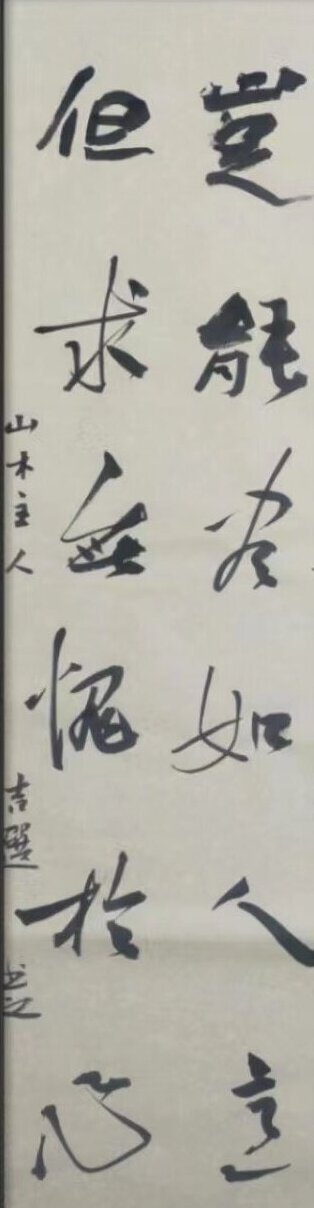 豈能盡如人意
但求無愧於心
山木主人 吉選 書